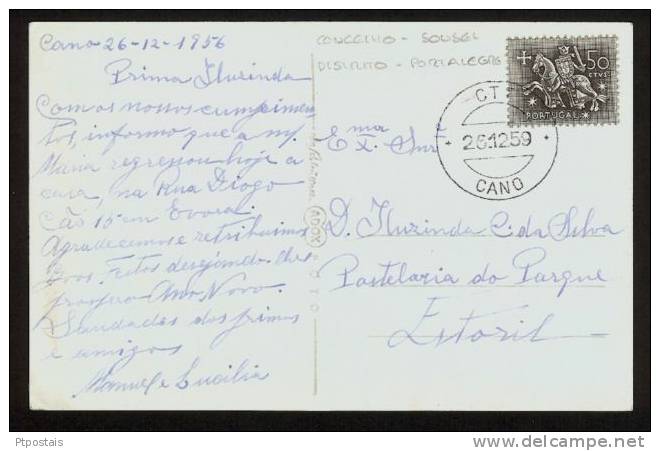 Cano 26-12-1956
Prima Iluzinda
Com os nossos cumprimen
tos, informo que a m.
Maria regressou hoje a
casa, na Rua Diogo
Cãs 15 em Evora.
Agradecemos e retribuimos
Boas Festas desejando-lhes
prospero Ano Novo.
Saudades dos primos
e amigos
Manuel e Lucilia
ADOX
FOTO
CONCELHO - SOUSEL
DISTRITO - PORTALEGRE
50
CTVS.
PORTUGAL
CT
26.12.59
CANO
Exma Snra
D. Iluzinda C. da Silva
Pastelaria do Parque
Estoril
Ptpostais
www.delcampe.net